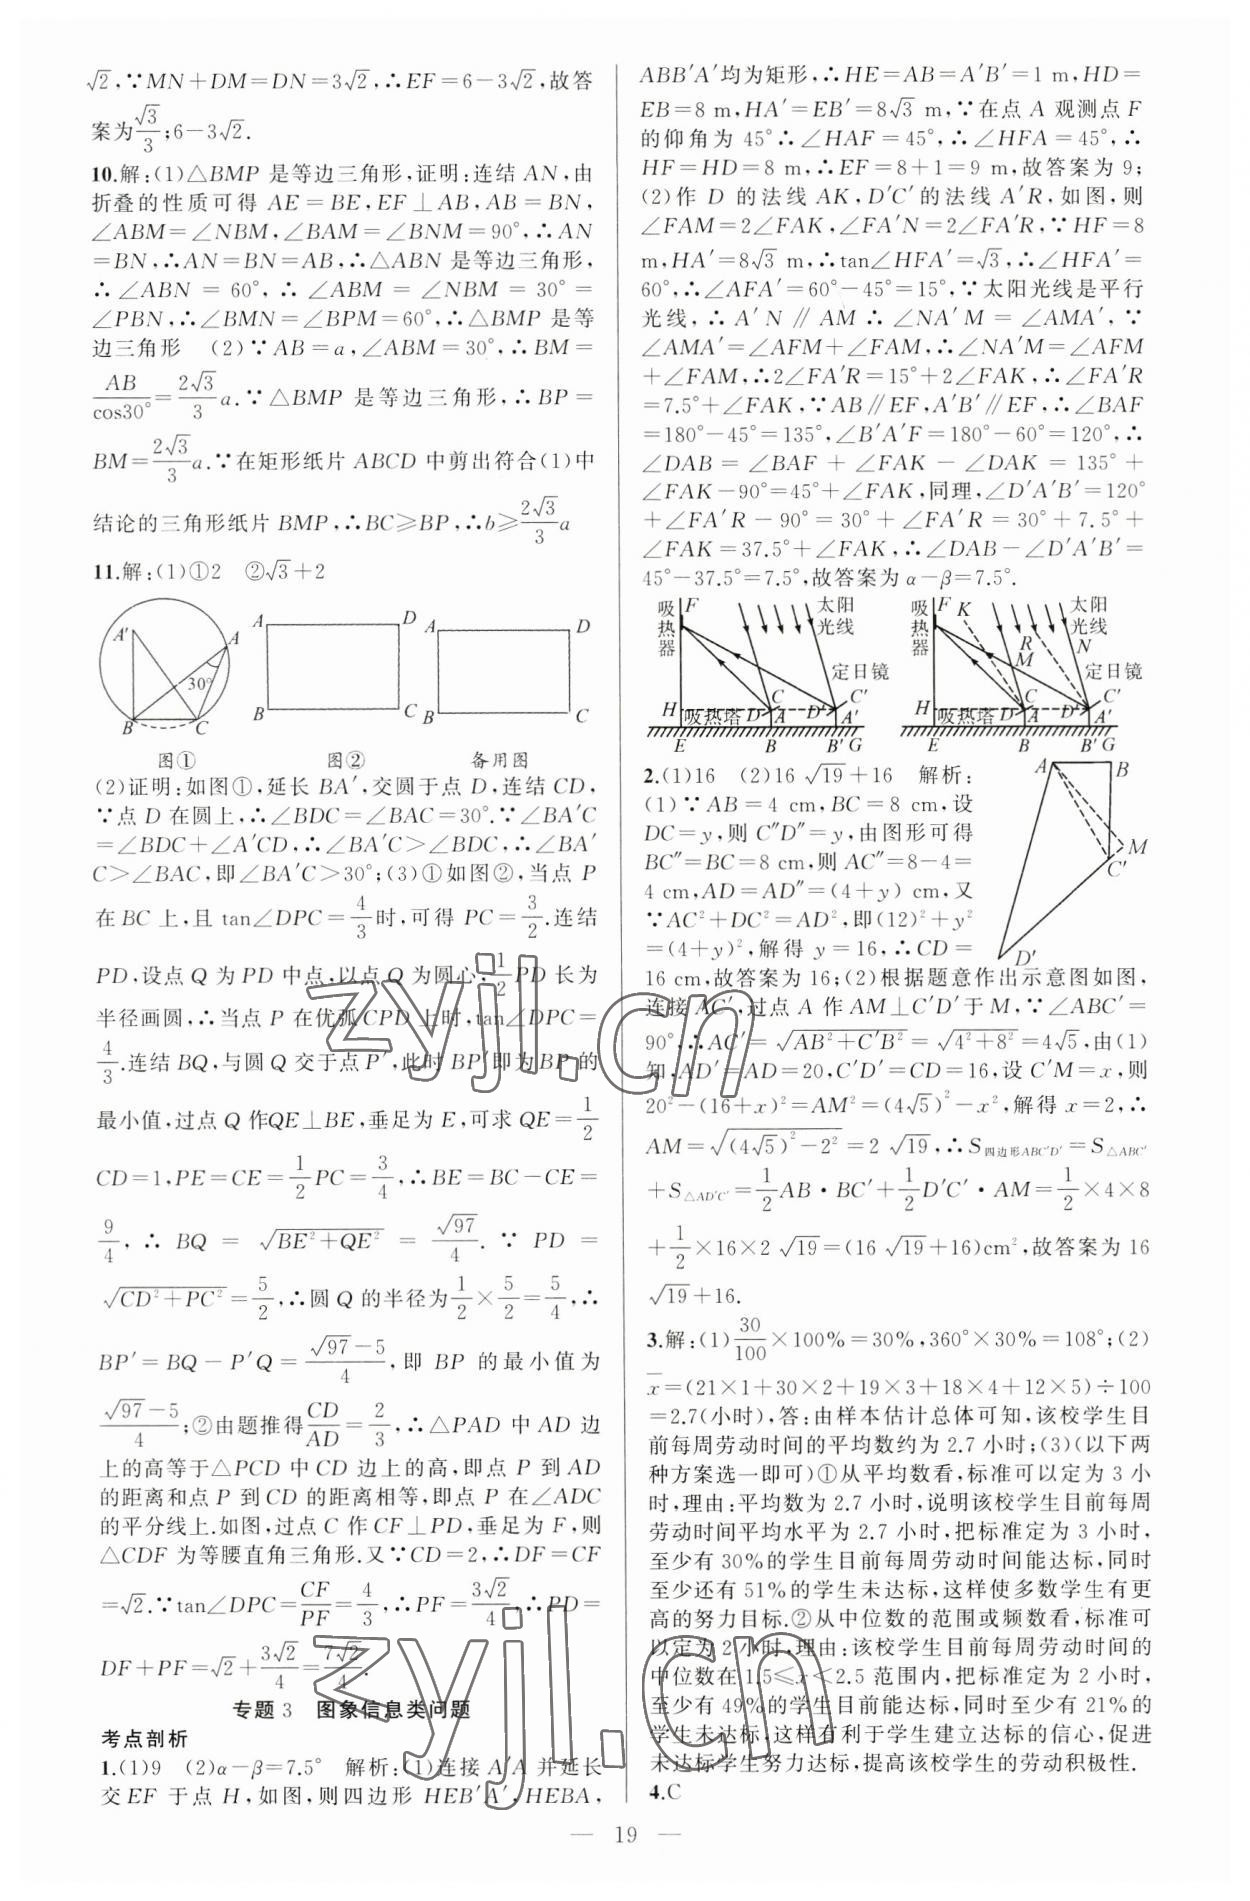 √2,∵MN+DM=DN=3√2,∴EF=6-3√2,故答
案为√3/3;6-3√2.
10.解:(1)△BMP 是等边三角形,证明:连结 AN,由
折叠的性质可得 AE=BE,EF⊥AB,AB=BN,
∠ABM=∠NBM,∠BAM=∠BNM=90°,∴AN
=BN,∴AN=BN=AB,∴△ABN 是等边三角形,
∴∠ABN=60°,∴∠ABM=∠NBM=30°=
∠PBN,∴∠BMN=∠BPM=60°,∴△BMP 是等
边三角形 (2)∵AB=a,∠ABM=30°,∴BM=
AB/cos30°=2√3/3 a.∵△BMP 是等边三角形,∴BP=
BM=2√3/3 a.∵在矩形纸片 ABCD 中剪出符合(1)中
结论的三角形纸片 BMP,∴BC≥BP,∴b≥2√3/3 a
11.解:(1)①2 ②√3+2
A′ A 30° B C
A D B C
A D B C
图① 图② 备用图
(2)证明:如图①,延长 BA′,交圆于点 D,连结 CD,
∵点 D 在圆上,∴∠BDC=∠BAC=30°.∵∠BA′C
=∠BDC+∠A′CD,∴∠BA′C>∠BDC,∴∠BA′
C>∠BAC,即∠BA′C>30°;(3)①如图②,当点 P
在 BC 上,且 tan∠DPC=4/3时,可得 PC=3/2.连结
PD,设点 Q 为 PD 中点,以点 Q 为圆心,1/2PD 长为
半径画圆,∴当点 P 在优弧 CPD 上时,tan∠DPC=
4/3.连结 BQ,与圆 Q 交于点 P′,此时 BP′即为 BP 的
最小值,过点 Q 作QE⊥BE,垂足为 E,可求 QE=1/2
CD=1,PE=CE=1/2PC=3/4,∴BE=BC-CE=
9/4,∴BQ=√(BE²+QE²)=√97/4.∵PD=
√(CD²+PC²)=5/2,∴圆 Q 的半径为1/2×5/2=5/4,∴
BP′=BQ-P′Q=(√97-5)/4,即 BP 的最小值为
(√97-5)/4;②由题推得CD/AD=2/3,∴△PAD 中 AD 边
上的高等于△PCD 中 CD 边上的高,即点 P 到 AD
的距离和点 P 到 CD 的距离相等,即点 P 在∠ADC
的平分线上.如图,过点 C 作 CF⊥PD,垂足为 F,则
△CDF 为等腰直角三角形.又∵CD=2,∴DF=CF
=√2.∵tan∠DPC=CF/PF=4/3,∴PF=3√2/4,∴PD=
DF+PF=√2+3√2/4=7√2/4.
专题 3 图象信息类问题
考点剖析
1.(1)9 (2)α-β=7.5° 解析:(1)连接 A′A 并延长
交 EF 于点 H,如图,则四边形 HEB′A′,HEBA,
ABB′A′均为矩形,∴HE=AB=A′B′=1 m,HD=
EB=8 m,HA′=EB′=8√3 m,∵在点 A 观测点 F
的仰角为 45°∴∠HAF=45°,∴∠HFA=45°,∴
HF=HD=8 m,∴EF=8+1=9 m,故答案为 9;
(2)作 D 的法线 AK,D′C′的法线 A′R,如图,则
∠FAM=2∠FAK,∠FA′N=2∠FA′R,∵HF=8
m,HA′=8√3 m,∴tan∠HFA′=√3,∴∠HFA′=
60°,∴∠AFA′=60°-45°=15°,∵太阳光线是平行
光线,∴A′N∥AM∴∠NA′M=∠AMA′,∵
∠AMA′=∠AFM+∠FAM,∴∠NA′M=∠AFM
+∠FAM,∴2∠FA′R=15°+2∠FAK,∴∠FA′R
=7.5°+∠FAK,∵AB∥EF,A′B′∥EF,∴∠BAF
=180°-45°=135°,∠B′A′F=180°-60°=120°,∴
∠DAB=∠BAF+∠FAK-∠DAK=135°+
∠FAK-90°=45°+∠FAK,同理,∠D′A′B′=120°
+∠FA′R-90°=30°+∠FA′R=30°+7.5°+
∠FAK=37.5°+∠FAK,∴∠DAB-∠D′A′B′=
45°-37.5°=7.5°,故答案为 α-β=7.5°.
吸热器 F 太阳光线 定日镜 H 吸热塔 D C A D′ C′ A′ E B B′ G
吸热器 F K 太阳光线 R N M 定日镜 H 吸热塔 D C A D′ C′ A′ E B B′ G
2.(1)16 (2)16 √19+16 解析:
(1)∵AB=4 cm,BC=8 cm,设
DC=y,则 C″D″=y,由图形可得
BC″=BC=8 cm,则 AC″=8-4=
4 cm,AD=AD″=(4+y) cm,又
∵AC²+DC²=AD²,即(12)²+y²
=(4+y)²,解得 y=16,∴CD=
A B M C′ D′
16 cm,故答案为 16;(2)根据题意作出示意图如图,
连接 AC′,过点 A 作 AM⊥C′D′于 M,∵∠ABC′=
90°,∴AC′=√(AB²+C′B²)=√(4²+8²)=4√5,由(1)
知,AD′=AD=20,C′D′=CD=16,设 C′M=x,则
20²-(16+x)²=AM²=(4√5)²-x²,解得 x=2,∴
AM=√((4√5)²-2²)=2 √19,∴S四边形ABC′D′=S△ABC′
+S△AD′C′=1/2AB·BC′+1/2D′C′·AM=1/2×4×8
+1/2×16×2 √19=(16 √19+16)cm²,故答案为 16
√19+16.
3.解:(1)30/100×100%=30%,360°×30%=108°;(2)
x̄=(21×1+30×2+19×3+18×4+12×5)÷100
=2.7(小时),答:由样本估计总体可知,该校学生目
前每周劳动时间的平均数约为 2.7 小时;(3)(以下两
种方案选一即可)①从平均数看,标准可以定为 3 小
时,理由:平均数为 2.7 小时,说明该校学生目前每周
劳动时间平均水平为 2.7 小时,把标准定为 3 小时,
至少有 30%的学生目前每周劳动时间能达标,同时
至少还有 51%的学生未达标,这样使多数学生有更
高的努力目标.②从中位数的范围或频数看,标准可
以定为 2 小时,理由:该校学生目前每周劳动时间的
中位数在 1.5≤x<2.5 范围内,把标准定为 2 小时,
至少有 49%的学生目前能达标,同时至少有 21%的
学生未达标,这样有利于学生建立达标的信心,促进
未达标学生努力达标,提高该校学生的劳动积极性.
4.C
— 19 —
zyjl.cn
zyjl.cn